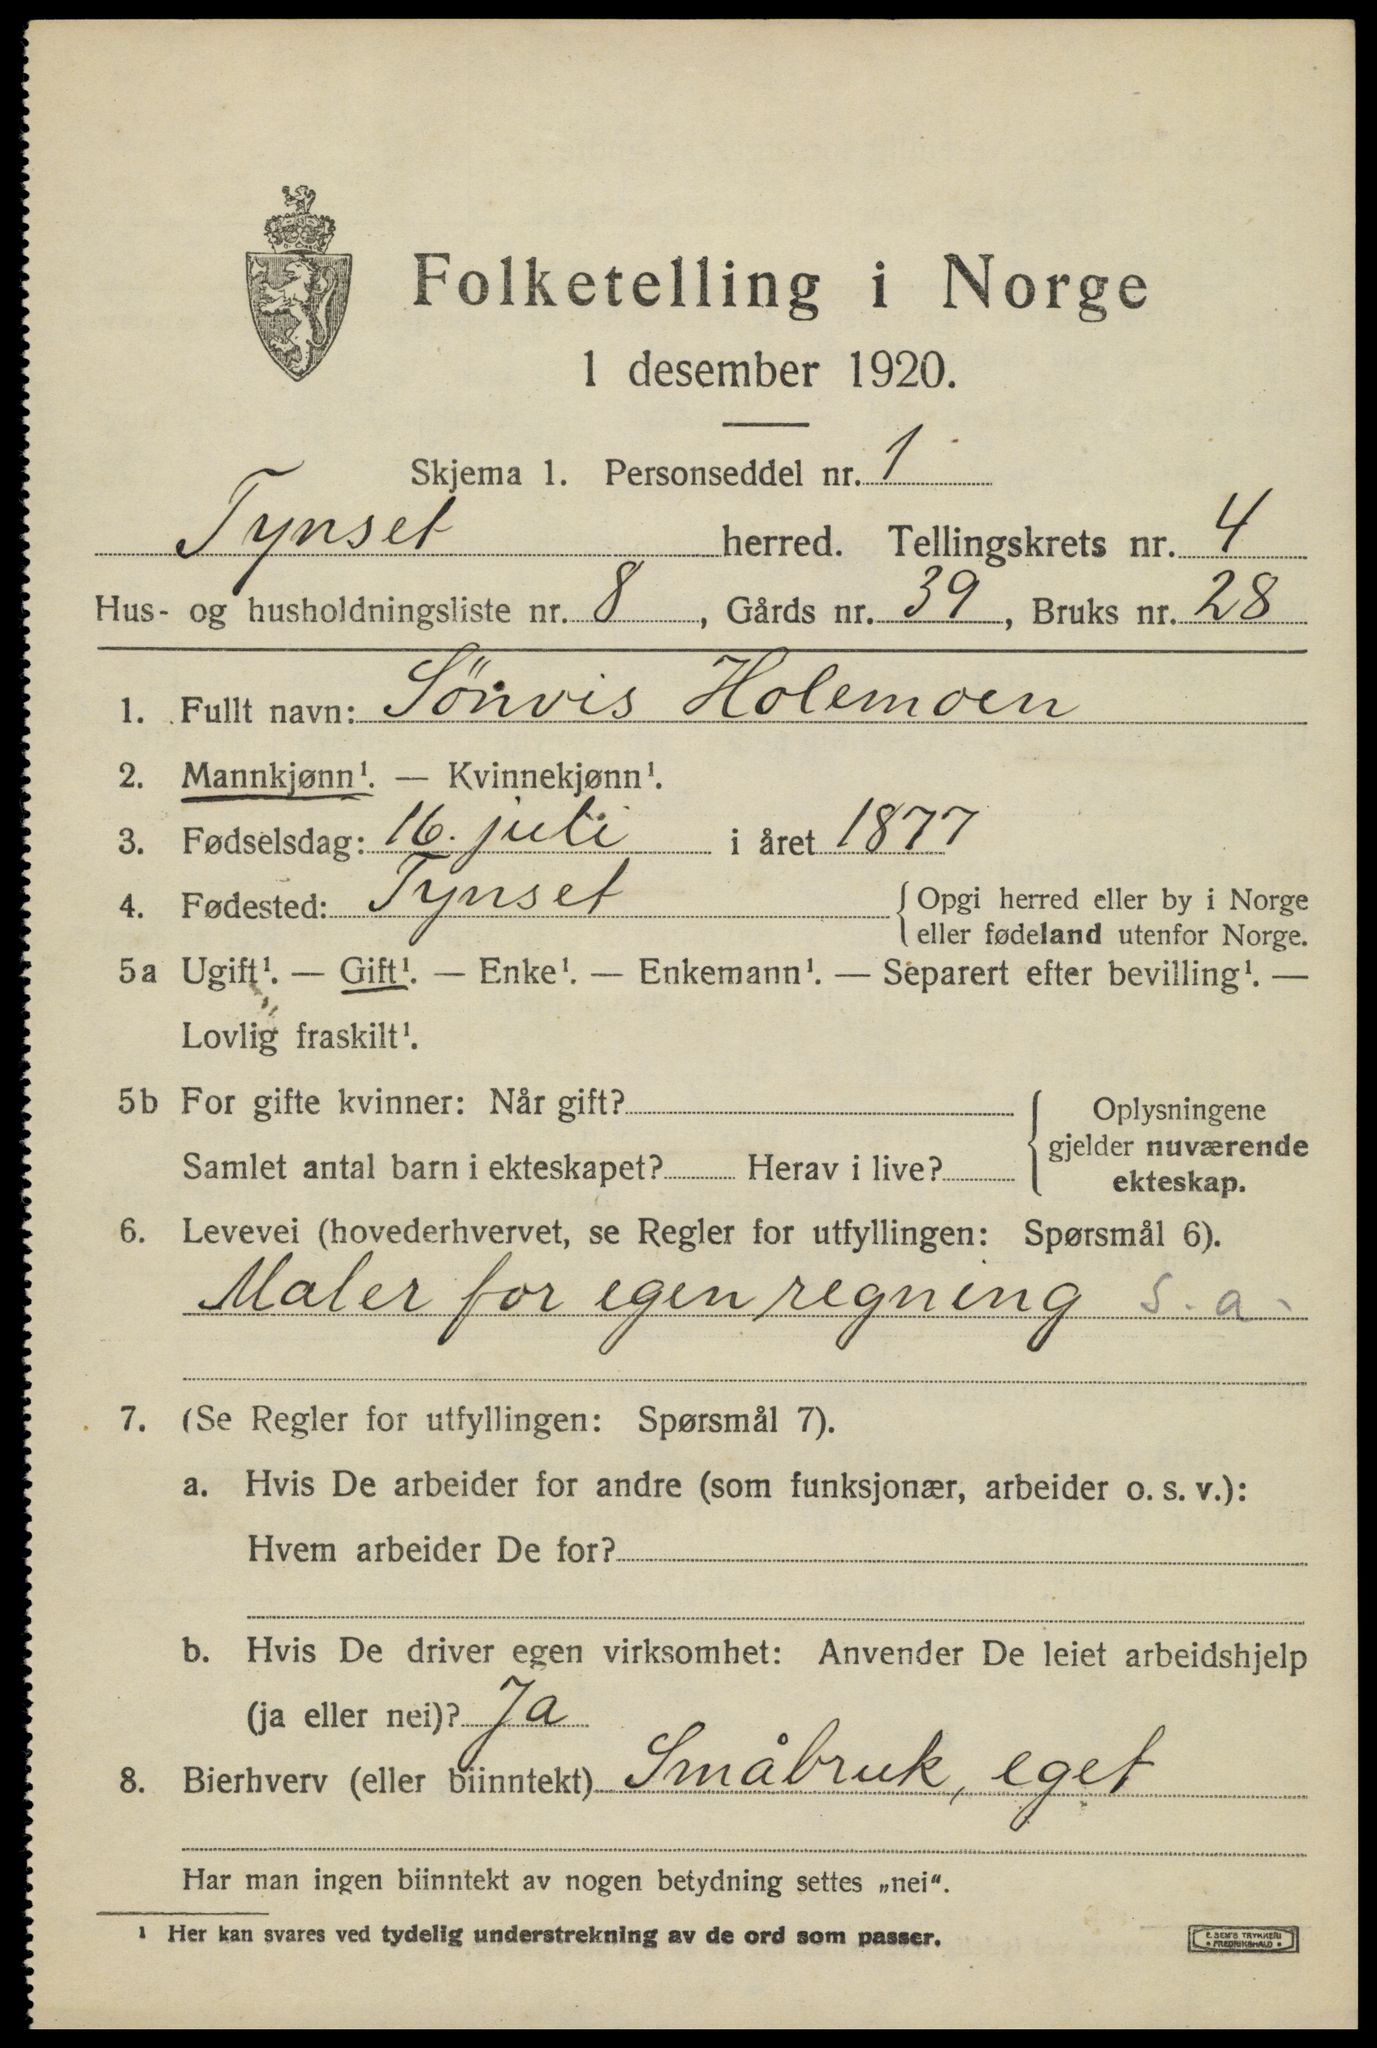 Folketelling i Norge
1 desember 1920.
Skjema 1. Personseddel nr. 1
Tynset herred. Tellingskrets nr. 4
Hus- og husholdningsliste nr. 8, Gårds nr. 39, Bruks nr. 28
1. Fullt navn: Sönvis Holemoen
2. Mannkjønn¹. — Kvinnekjønn¹.
3. Fødselsdag: 16. juli i året 1877
4. Fødested: Tynset { Opgi herred eller by i Norge
eller fødeland utenfor Norge.
5a Ugift¹. — Gift¹. — Enke¹. — Enkemann¹. — Separert efter bevilling¹. —
Lovlig fraskilt¹.
5b For gifte kvinner: Når gift?
Samlet antal barn i ekteskapet? Herav i live?
{ Oplysningene
gjelder nuværende
ekteskap.
6. Levevei (hovederhvervet, se Regler for utfyllingen: Spørsmål 6).
Maler for egen regning s. a.
7. (Se Regler for utfyllingen: Spørsmål 7).
a. Hvis De arbeider for andre (som funksjonær, arbeider o. s. v.):
Hvem arbeider De for?
b. Hvis De driver egen virksomhet: Anvender De leiet arbeidshjelp
(ja eller nei)? Ja
8. Bierhverv (eller biinntekt) Småbruk, eget
Har man ingen biinntekt av nogen betydning settes „nei“.
¹ Her kan svares ved tydelig understrekning av de ord som passer.
E. SEM'S TRYKKERI
• FREDRIKSHALD •